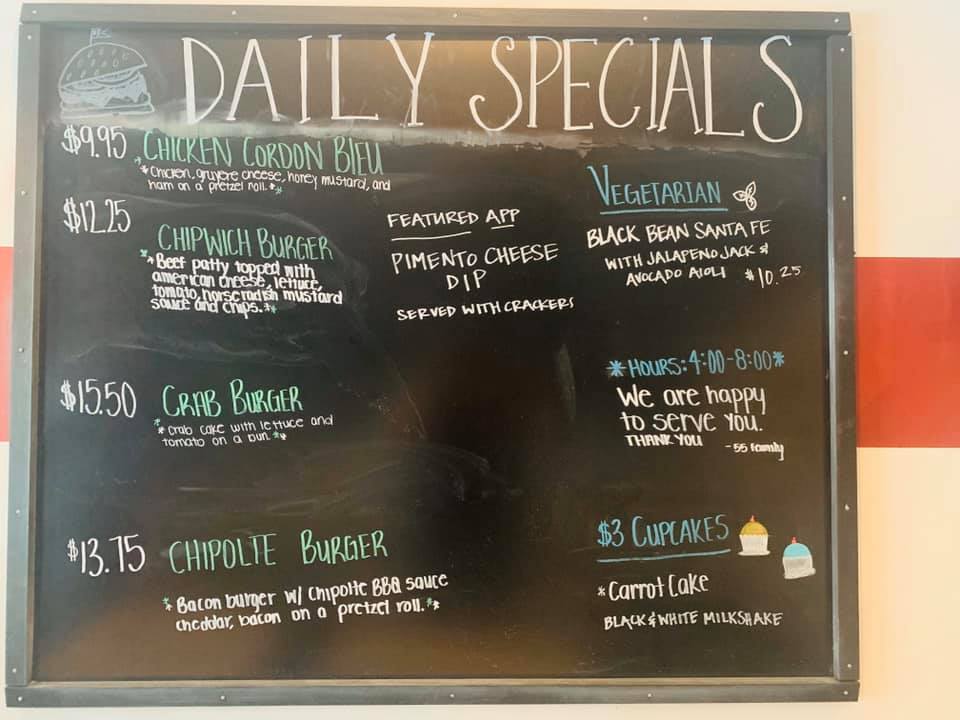 DAILY SPECIALS
$9.95 CHICKEN CORDON BLEU
*Chicken, gruyere cheese, honey mustard, and
ham on a pretzel roll.**
$12.25
CHIPWICH BURGER
** Beef patty topped with
american cheese, lettuce,
tomato, horseradish mustard
sauce and chips.**
$15.50 CRAB BURGER
** crab cake with lettuce and
tomato on a bun.**
$13.75 CHIPOLTE BURGER
** Bacon burger w/ chipotle BBQ sauce
cheddar, bacon on a pretzel roll.**
FEATURED APP
PIMENTO CHEESE
DIP
SERVED WITH CRACKERS
VEGETARIAN
BLACK BEAN SANTA FE
WITH JALAPENO JACK &
AVOCADO AIOLI $10.25
*HOURS: 4:00-8:00*
We are happy
to serve you.
THANK YOU
-55 family
$3 CUPCAKES
*Carrot Cake
BLACK & WHITE MILKSHAKE